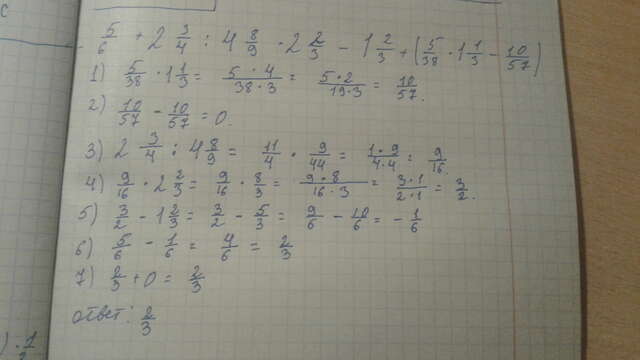 5/6 + 2 3/4 : 4 8/9 · 2 2/3 - 1 2/3 + (5/38 · 1 1/3 - 10/57)
1) 5/38 · 1 1/3 = 5·4/38·3 = 5·2/19·3 = 10/57.
2) 10/57 - 10/57 = 0.
3) 2 3/4 : 4 8/9 = 11/4 · 9/44 = 1·9/4·4 = 9/16.
4) 9/16 · 2 2/3 = 9/16 · 8/3 = 9·8/16·3 = 3·1/2·1 = 3/2.
5) 3/2 - 1 2/3 = 3/2 - 5/3 = 9/6 - 10/6 = - 1/6
6) 5/6 - 1/6 = 4/6 = 2/3
7) 2/3 + 0 = 2/3
Ответ: 2/3